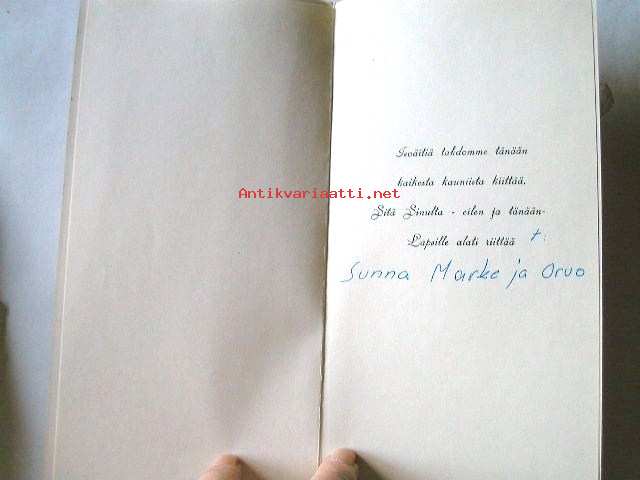 Isoäitiä tahdomme tänään
kaikesta kauniista kiittää.
Antikvariaatti.net
Sitä Sinulta - eilen ja tänään-
Lapsille alati riittää
t:
Sunna Marke ja Orvo